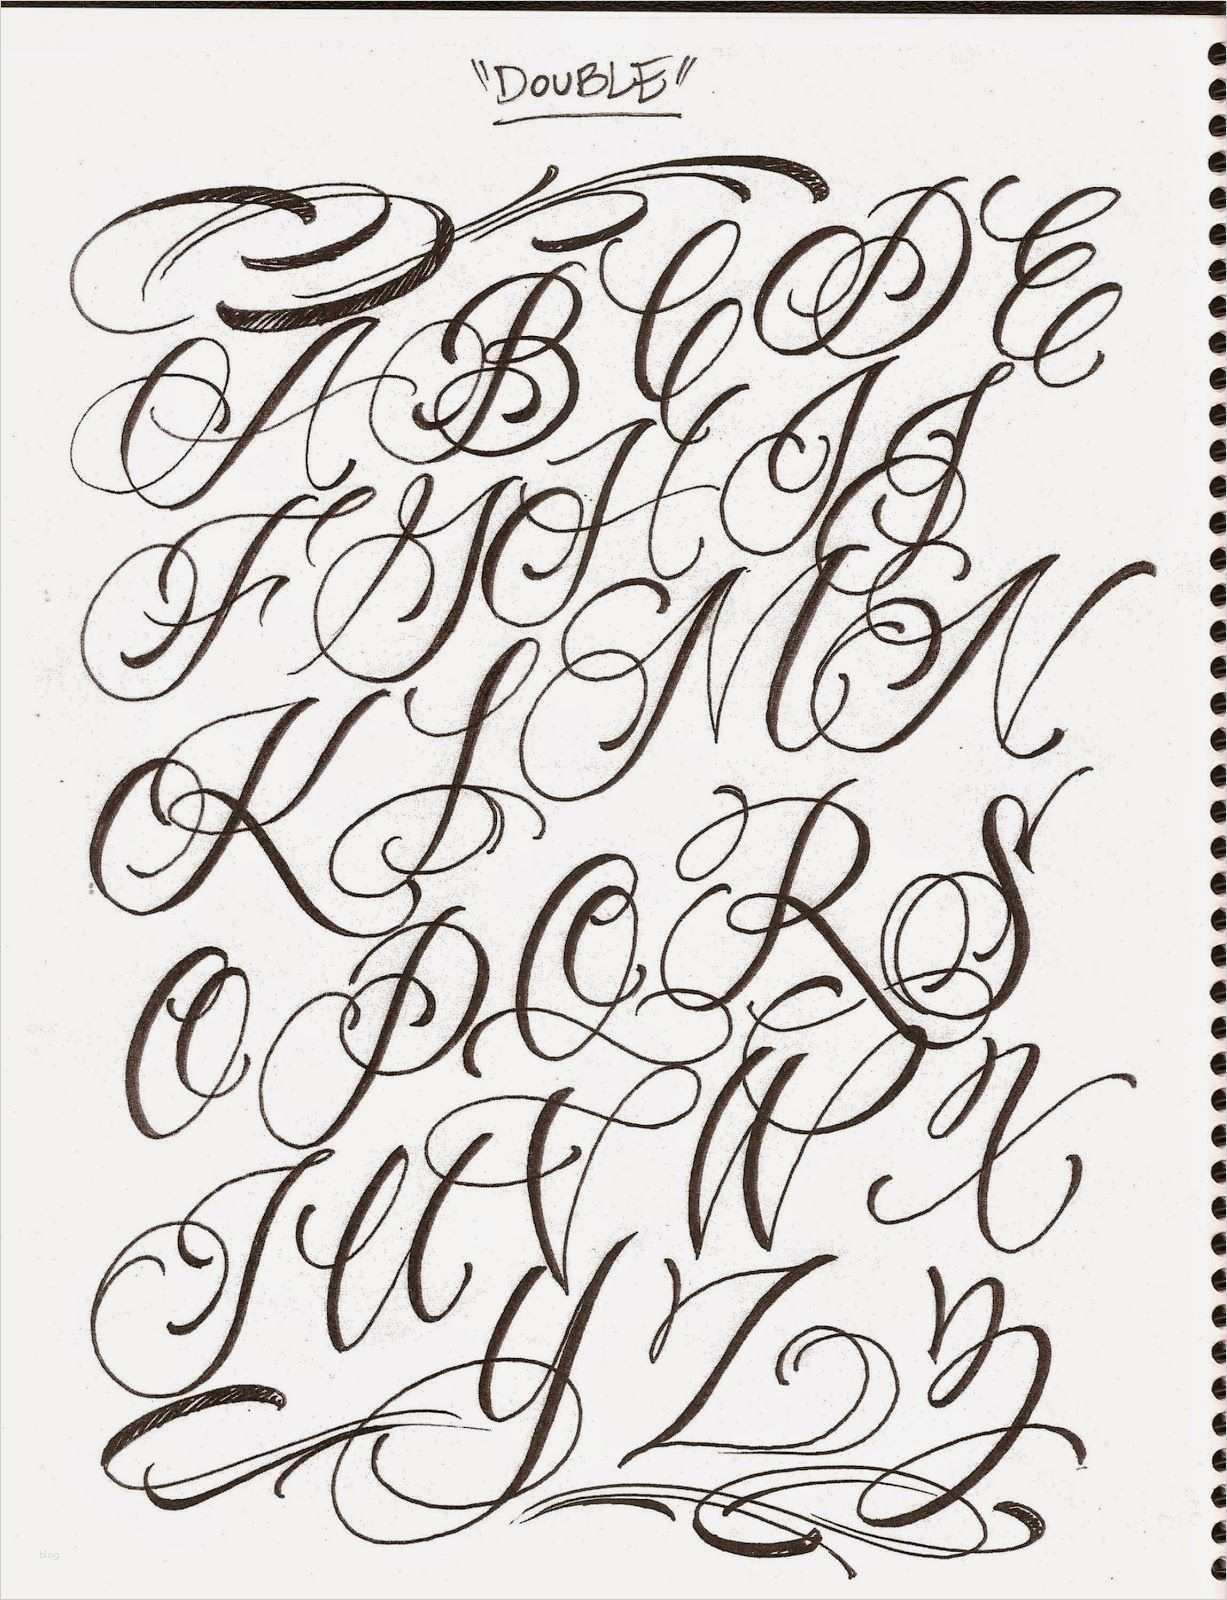 "DOUBLE"
A B C D E
F G H I J
K L M N
O P Q R S
T U V W X
Y Z Z
blog